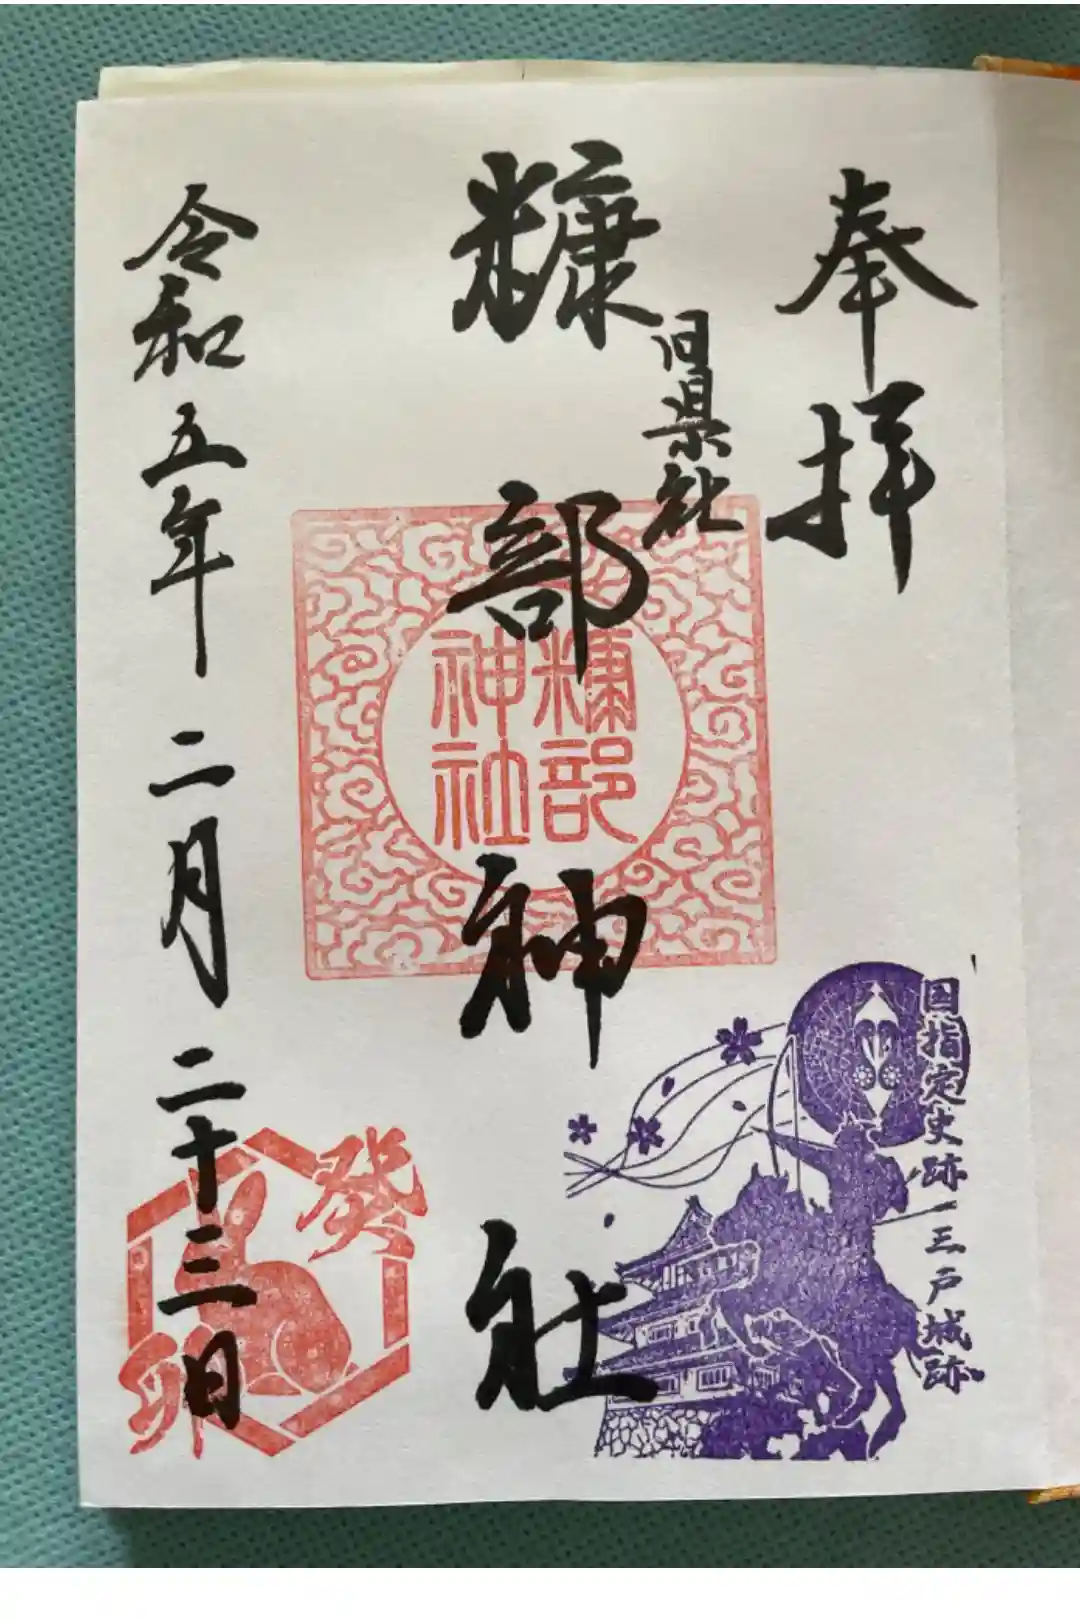 奉拝
旧県社
糠部神社
糠部
神社
国指定史跡 三戸城跡
癸
卯
令和五年二月二十三日